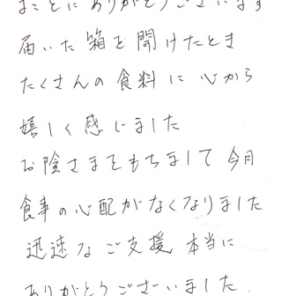 まことにありがとうございます
届いた箱を開けたとき
たくさんの食料に心から
嬉しく感じました
お陰さまをもちまして今月
食事の心配がなくなりました
迅速なご支援本当に
ありがとうございました